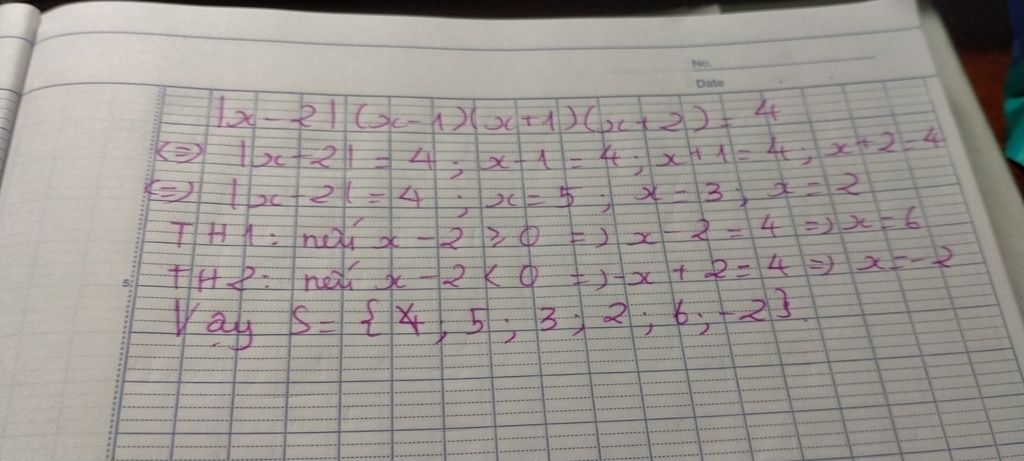 No.
Date
|x-2|(x-1)(x+1)(x+2) = 4
<=> |x-2| = 4 ; x-1 = 4 ; x+1 = 4 ; x+2 = 4
<=> |x-2| = 4 ; x = 5 ; x = 3 ; x = 2
TH1: nếu x-2 ≥ 0 => x-2 = 4 => x = 6
TH2: nếu x-2 < 0 => -x+2 = 4 => x = -2
Vậy S = {4; 5; 3; 2; 6; -2}.